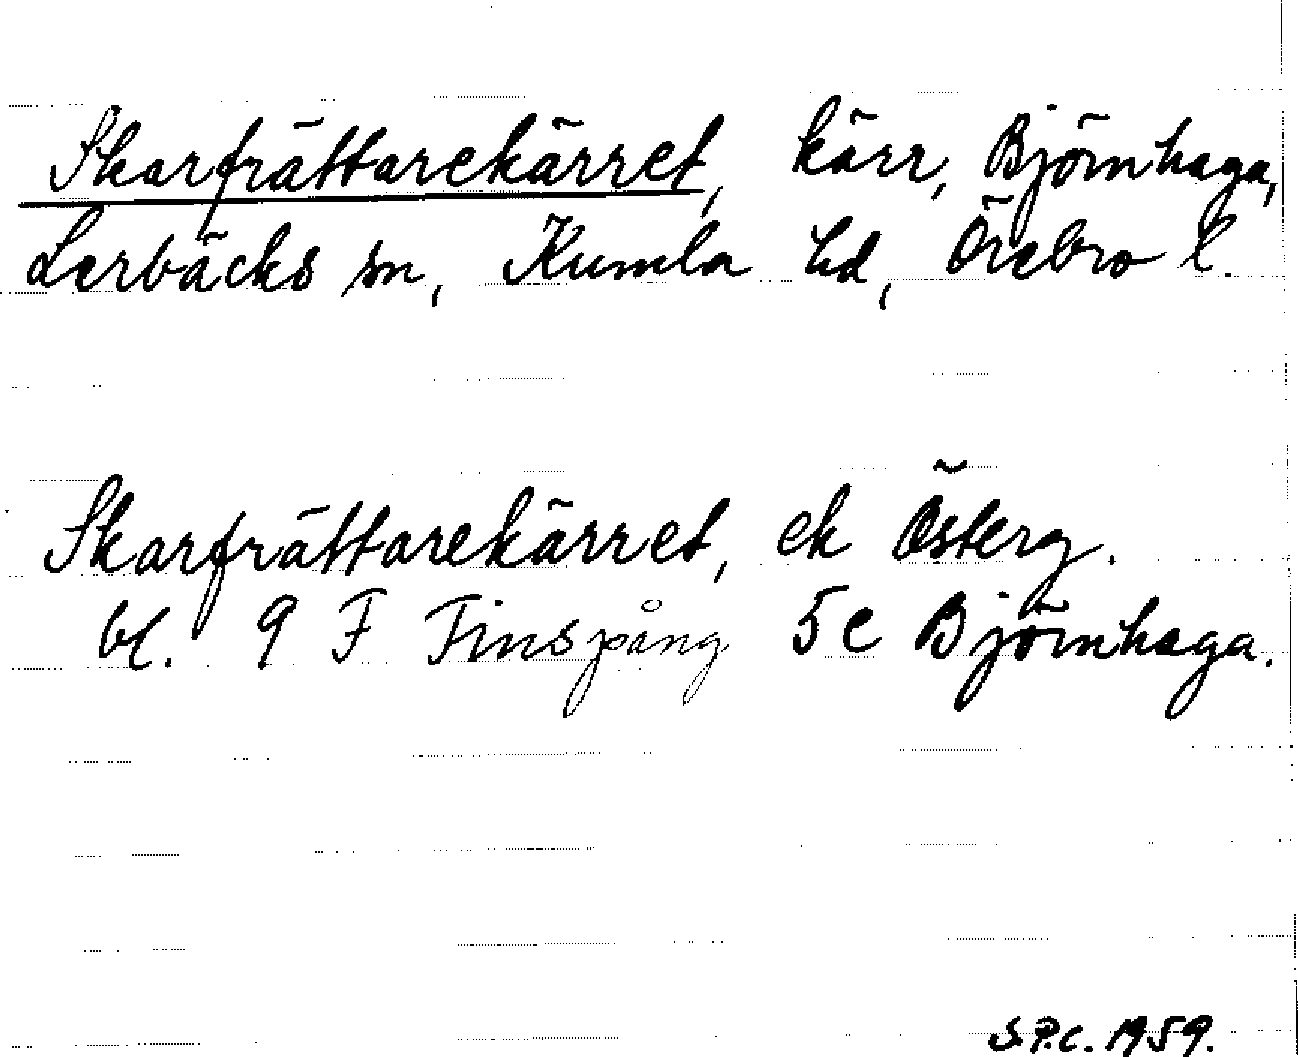 Skarfrättarekärret, kärr, Björnhaga,
Lerbäcks sn, Kumla hd, Örebro l.
Skarfrättarekärret, ek Österg.
bl. 9 F Finspång 5 e Björnhaga.
S.P.C. 1959.